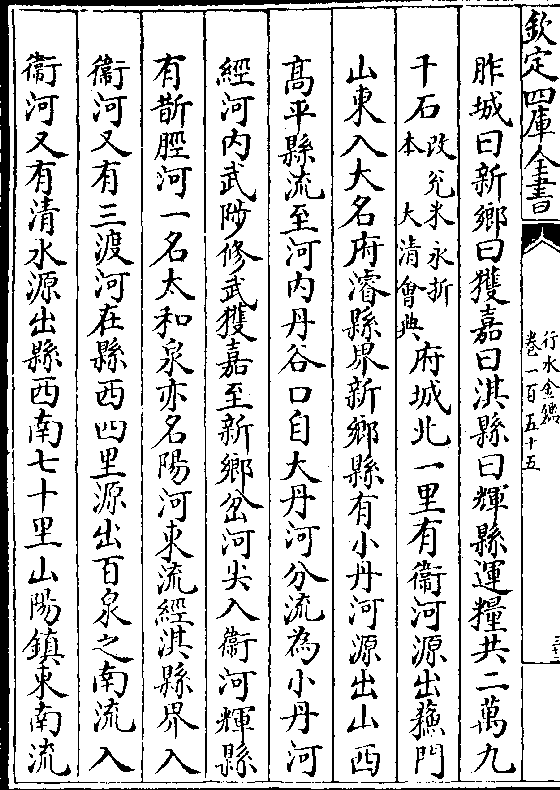 欽定四庫全書
行水金鑑
卷一百五十五
胙城曰新鄉曰獲嘉曰淇縣曰輝縣運糧共二萬九
千石改兌米永折本大清會典府城北一里有衞河源出蘓門
山東入大名府濬縣界新鄉縣有小丹河源出山西
髙平縣流至河内丹谷口自大丹河分流為小丹河
經河内武陟修武獲嘉至新鄉岔河尖入衞河輝縣
有斮脛河一名太和泉亦名陽河東流經淇縣界入
衞河又有三渡河在縣西四里源出百泉之南流入
衞河又有清水源出縣西南七十里山陽鎮東南流